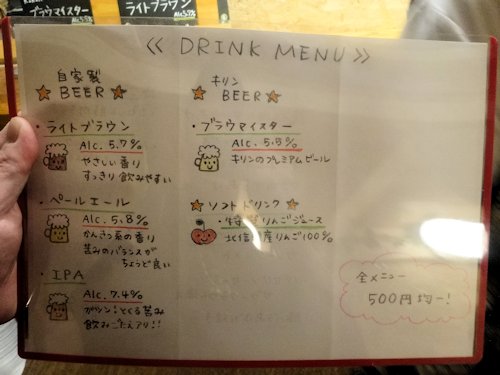 ブラウマイスター
ライトブラウン
Alc.5.7%
《 DRINK MENU 》
自家製
★ BEER ★
・ライトブラウン
Alc. 5.7%
やさしい香り
すっきり飲みやすい
・ペールエール
Alc. 5.8%
かんきつ系の香り
苦みのバランスが
ちょうど良い
・IPA
Alc. 7.4%
ガツンとくる苦み
飲みごたえアリ!!
キリン
★ BEER ★
・ブラウマイスター
Alc. 5.5%
キリンのプレミアムビール
★ ソフトドリンク ★
りんごジュース
北信 産りんご100%
全メニュー
500円均一!